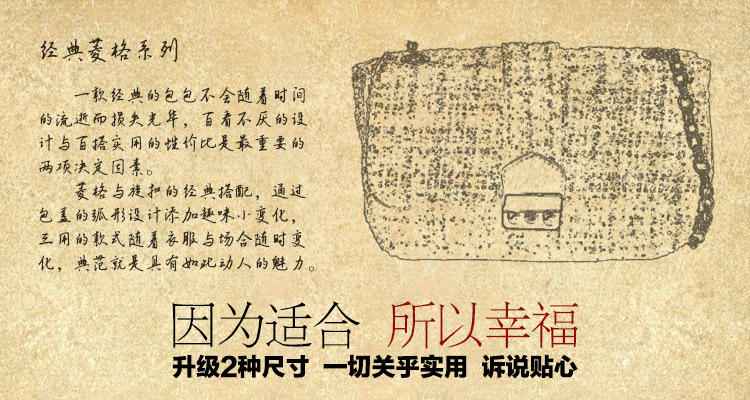 经典菱格系列
一款经典的包包不会随着时间
的流逝而损失光年，百看不厌的设
计与百搭实用的性价比是最重要的
两项决定因素。
菱格与旋扣的经典搭配，通过
包盖的弧形设计添加趣味小变化，
三用的款式随着衣服与场合随时变
化，典范就是具有如此动人的魅力。
因为适合 所以幸福
升级2种尺寸 一切关乎实用 诉说贴心